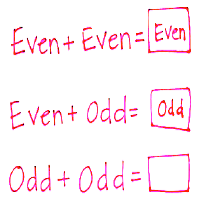 Even + Even = Even
Even + Odd = Odd
Odd + Odd =